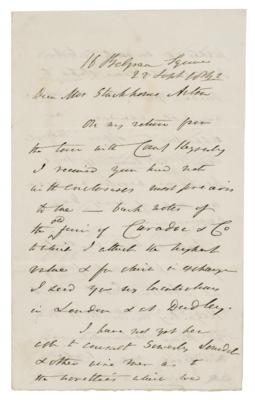 16 Belgrave Square
22 Sept 1842
Dear Mrs Stackhouse Acton
On my return from
the tour with Count Keyserling
I received your kind note
with enclosures most precious
to me — bank notes of
the old firm of Caradoc & Co
to which I attach the highest
value & for which in exchange
I send you my lucubrations
in London & at Dudley.
I have not yet been
able to consult Sowerby
& other wise men as to
the novelties which we